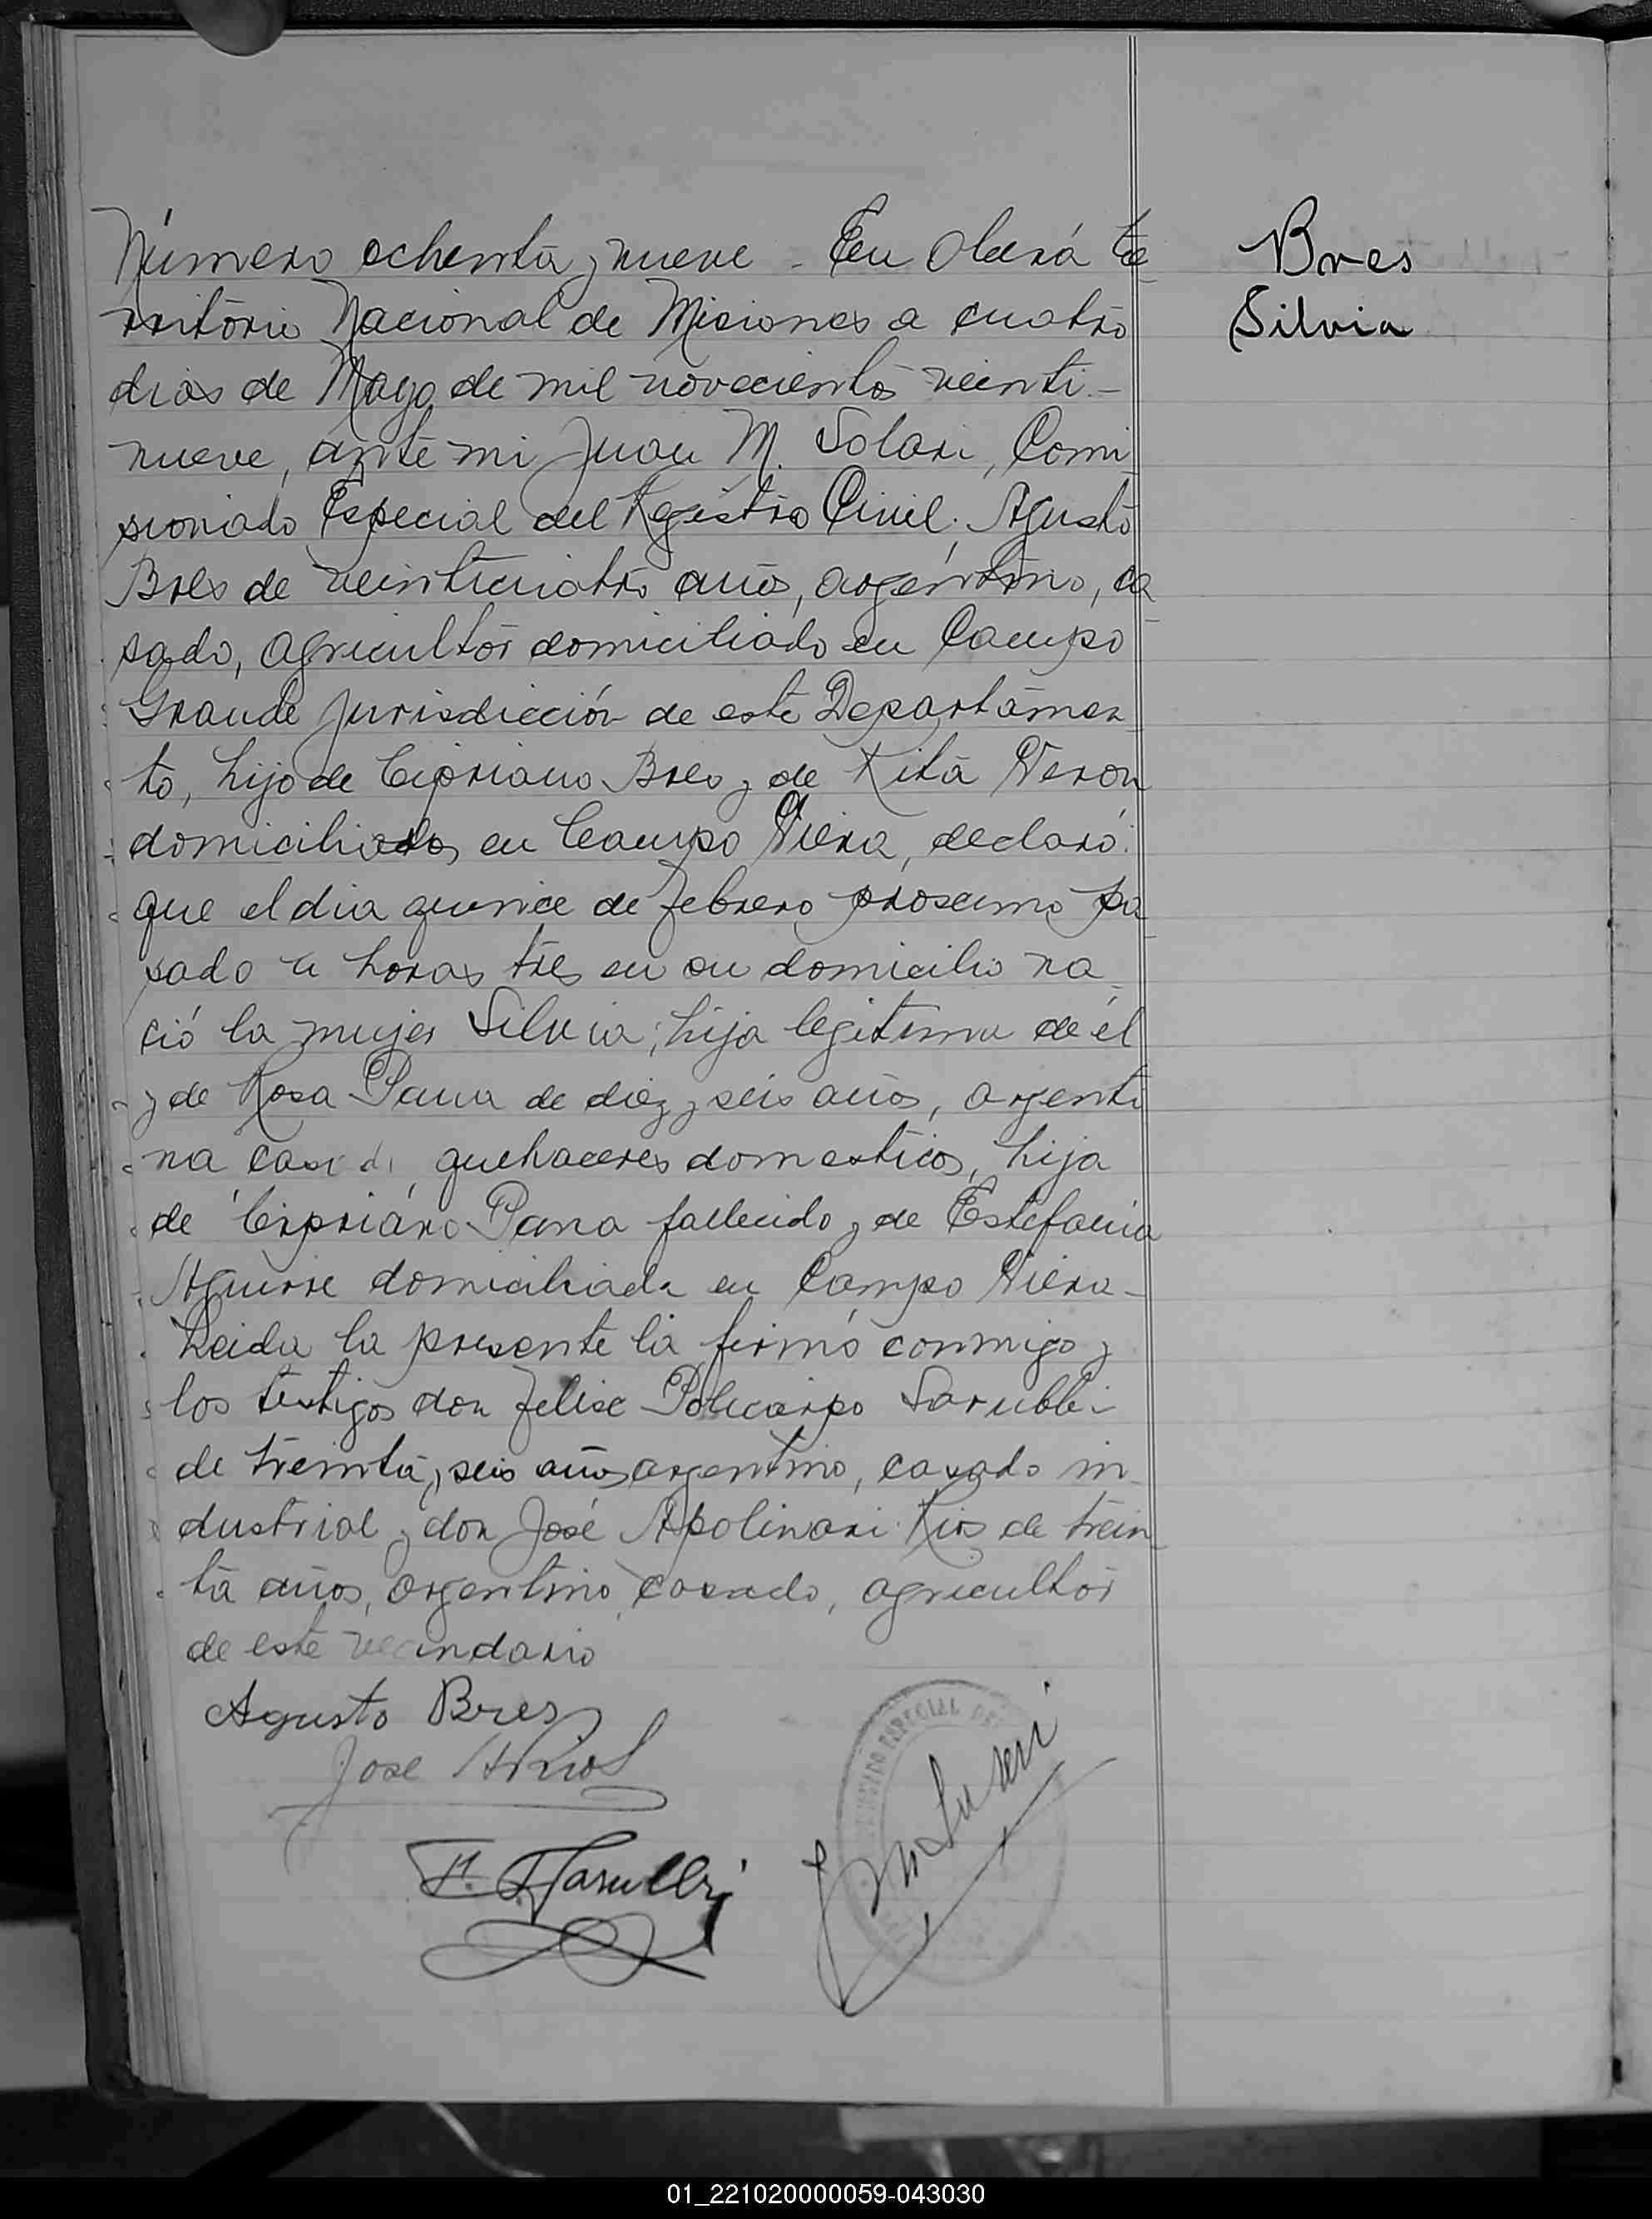 Número ochenta y nueve - En Oberá te
rritorio Nacional de Misiones a cuatro
dias de Mayo de mil novecientos veinti-
nueve, ante mi Juan M. Solari, Comi
sionado Especial del Registro Civil. Agusto
Bres de veinticuatro años, argentino, ca
sado, agricultor domiciliado en Campo
Grande jurisdicción de este Departamen
to, hijo de Cipriano Bres y de Rita Veron
domiciliados en Campo Viera, declaró:
que el dia quince de febrero proximo pa
sado a horas tres en su domicilio na
ció la mujer Silvia, hija legitima de él
y de Rosa de diez y seis años, argenti
na casada, quehaceres domesticos, hija
de Cipriano fallecido y de Estefania
Aguirre domiciliada en Campo Viera-
Leida la presente la firmó conmigo y
los testigos don Felise Policarpo Sarubbi
de treinta y seis años argentino, casado in
dustrial y don José Apolinari Rios de trein
ta años, argentino, casado, agricultor
de este vecindario
Agusto Bres
Jose A Rios
COMISIONADO ESPECIAL DEL
Bres
Silvia
01_221020000059-043030